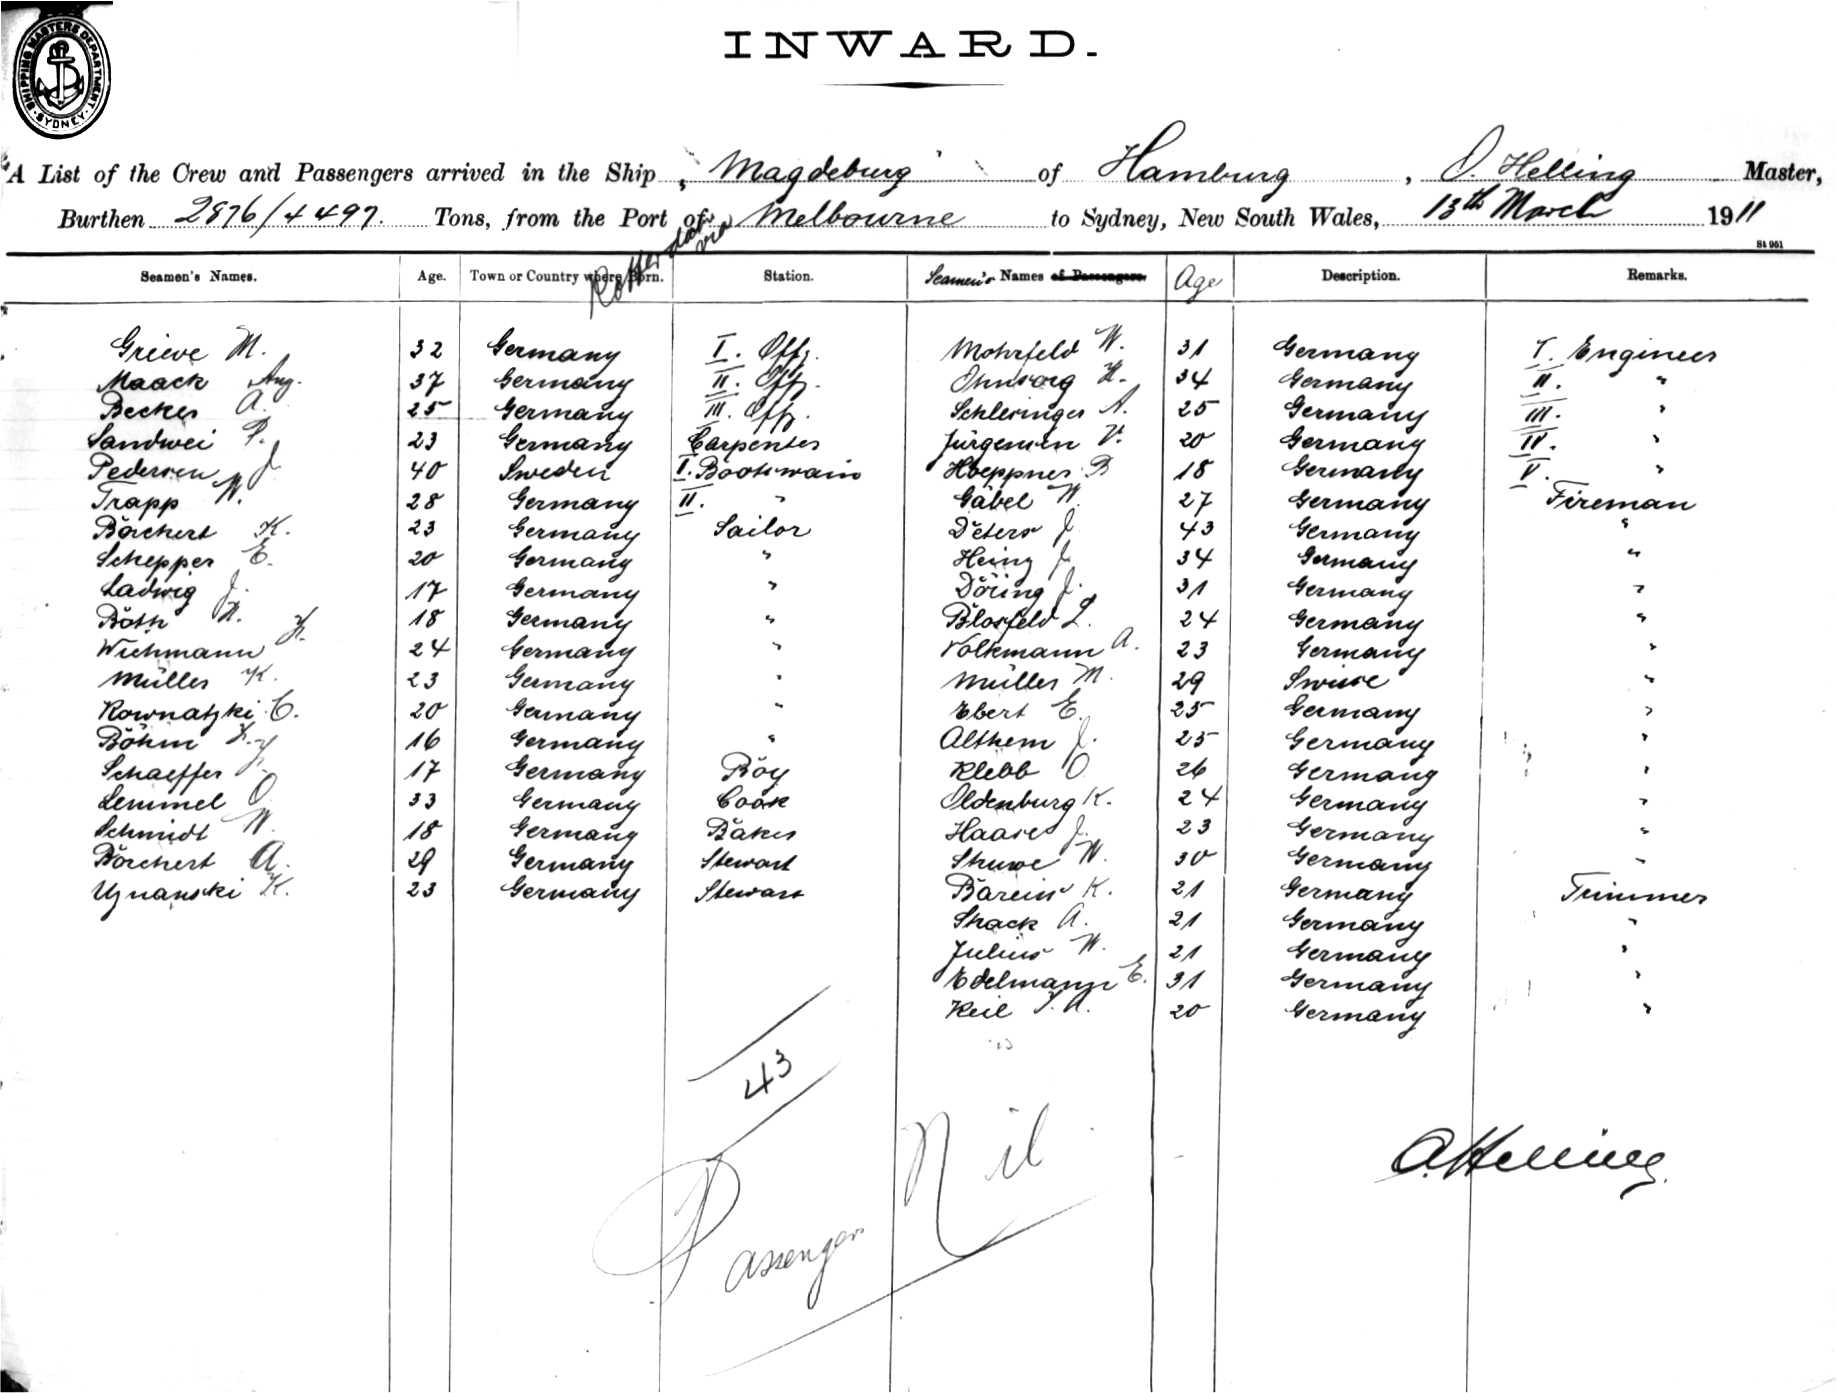 SHIPPING MASTERS DEPARTMENT
SYDNEY
INWARD.
A List of the Crew and Passengers arrived in the Ship "Magdeburg" of Hamburg, O. Helling Master,
Burthen 2876/4497. Tons, from the Port of Rotterdam via Melbourne to Sydney, New South Wales, 13th March 1911
St 961
Seamen's Names. Age. Town or Country where Born. Station. Seamen's Names of Passengers. Age Description. Remarks.
Grieve M. 32 Germany I. Offz. Mohrfeld W. 31 Germany I. Engineer
Maack Aug. 37 Germany II. Offz. Ohnsorg H. 34 Germany II. "
Becker A. 25 Germany III. Offz. Schlesinger A. 25 Germany III. "
Sandwei P. 23 Germany Carpenter Jürgensen V. 20 Germany IV. "
Pedersen J. 40 Sweden I. Bootswain Hoeppner B 18 Germany V. "
Trapp W. 28 Germany II. " Gäbel W. 27 Germany Fireman
Borchert K. 23 Germany Sailor Peters J. 43 Germany "
Schepper E. 20 Germany " Heinz J. 34 Germany "
Ladwig J. 17 Germany " Döring J. 31 Germany "
Both H. 18 Germany " Blosfeld L. 24 Germany "
Wichmann F. 24 Germany " Volkmann A. 23 Germany "
Müller K. 23 Germany " Müller M. 29 Swisse "
Rownatzki C. 20 Germany " Ebert E. 25 Germany "
Böhm F. 16 Germany " Althem J. 25 Germany "
Schaeffer F. 17 Germany Boy Klebb O 26 Germany "
Lemmel O. 33 Germany Cook Oldenburg K. 24 Germany "
Schmidt W. 18 Germany Baker Haase J. 23 Germany "
Borchert A. 29 Germany Stewart Stuwe W. 30 Germany "
Uznanski K. 23 Germany Stewart Barein K. 21 Germany Trimmer
Stack A. 21 Germany "
Julius W. 21 Germany "
Edelmann E. 31 Germany "
Keil A. 20 Germany "
43
Passengers Nil
O. Helling